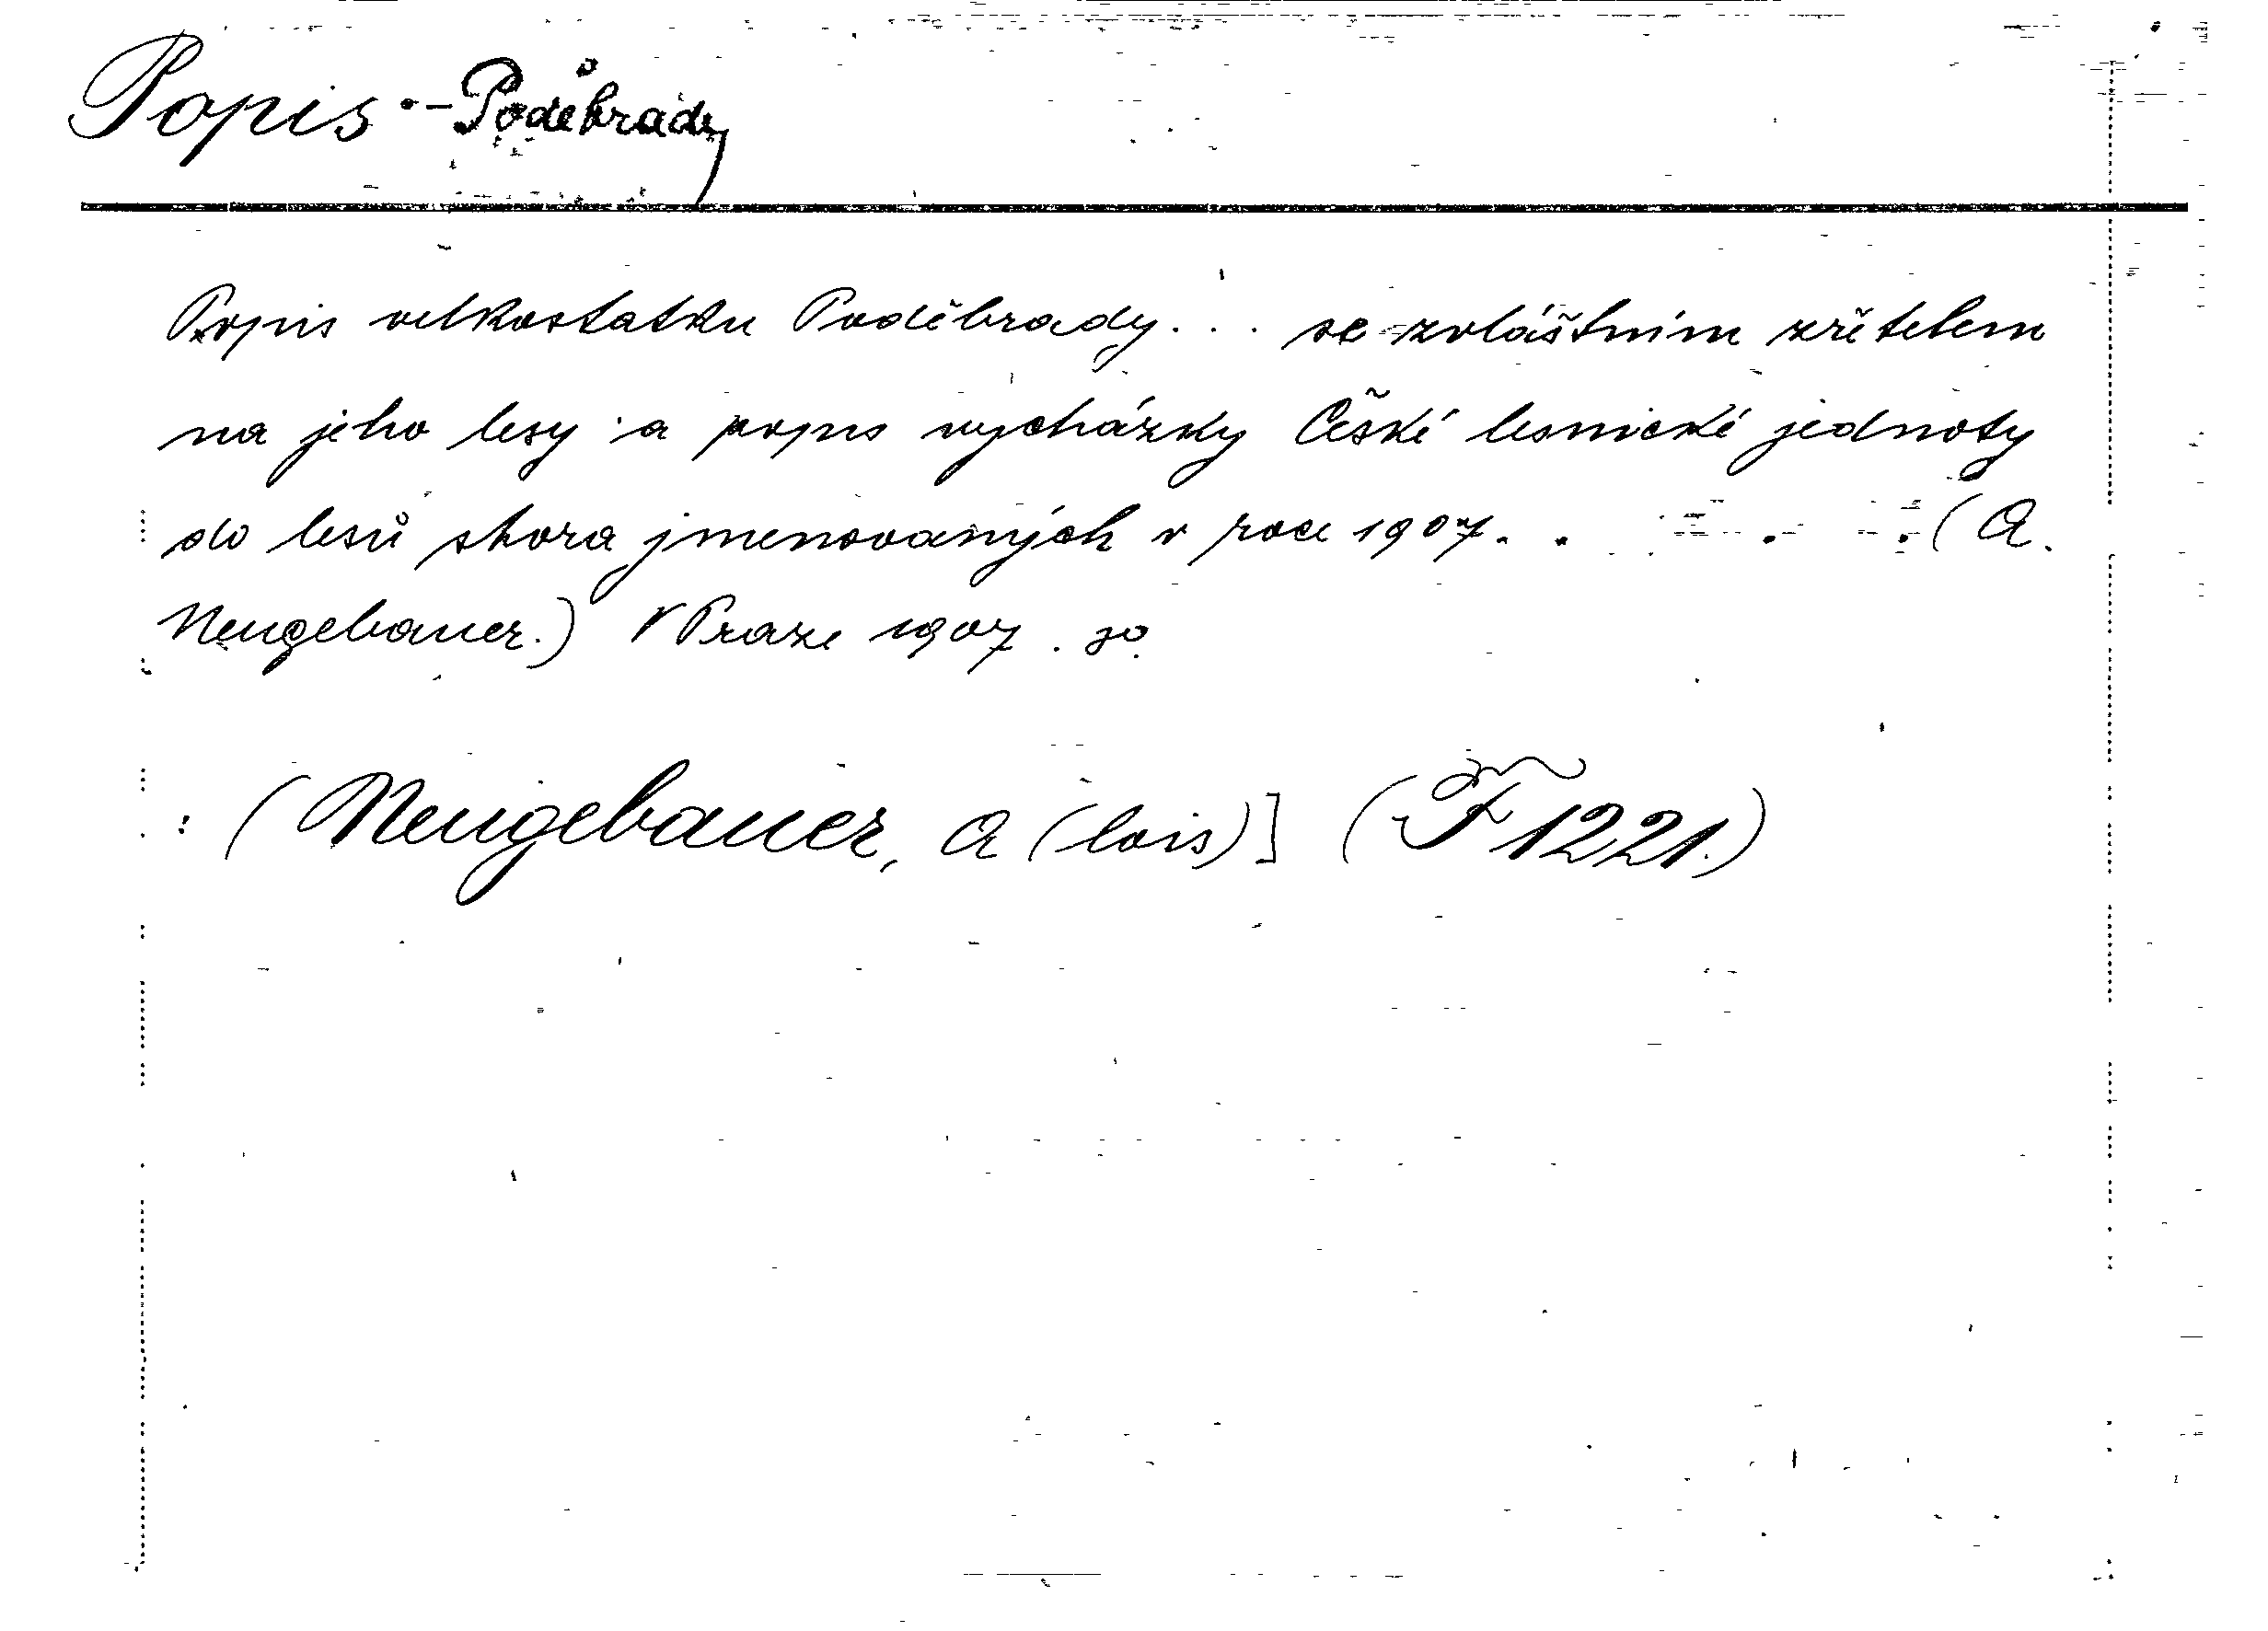 Popis - Poděbrady
Popis velkostatku Poděbrady... se zvláštním zřetelem
na jeho lesy a popis vycházky České lesnické jednoty
do lesů shora jmenovaných v roce 1907. . . . (A.
Neugebauer.) V Praze 1907.
(Neugebauer, A(lois)] (F 1221.)